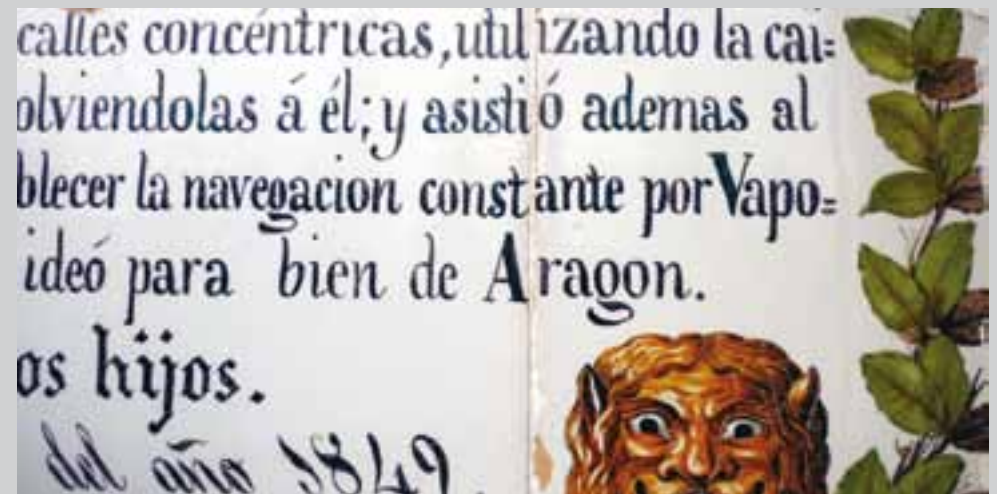 calles concéntricas, utilizando la cai=
olviendolas á él; y asistió ademas al
blecer la navegacion constante por Vapo=
ideó para bien de Aragon.
os hijos.
del año 1849.